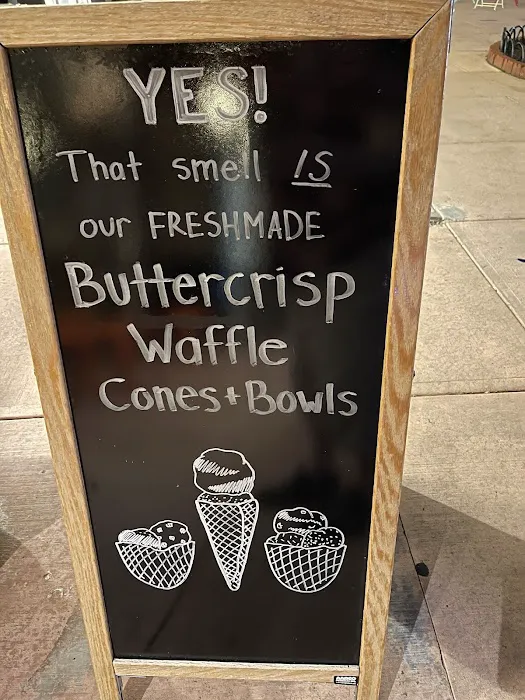 YES!
That smell IS
our FRESHMADE
Buttercrisp
Waffle
Cones+Bowls